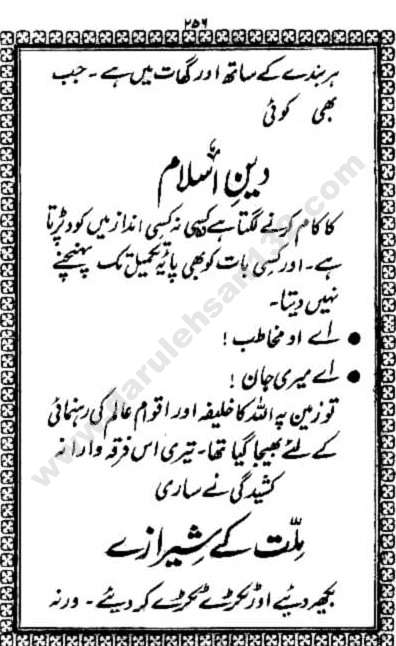 ۲۵۶
ہر بندے کے ساتھ اور گھات میں ہے ۔ جب
بھی کوئی
دینِ اسلام
کا کام کرنے لگتا ہے کسی نہ کسی انداز میں کود پڑتا
ہے ۔ اور کسی بات کو بھی پائیہ تکمیل تک پہنچنے
نہیں دیتا ۔
● اے او مخاطب !
● اے میری جان !
تو زمین پہ اللہ کا خلیفہ اور اقوامِ عالم کی رہنمائی
کے لئے بھیجا گیا تھا ۔ تیری اس فرقہ وارانہ
کشیدگی نے ساری
ملّت کے شیرازے
بکھیر دئیے اور ٹکڑے ٹکڑے کر دیئے ۔ ورنہ
www.darulehsan139.com